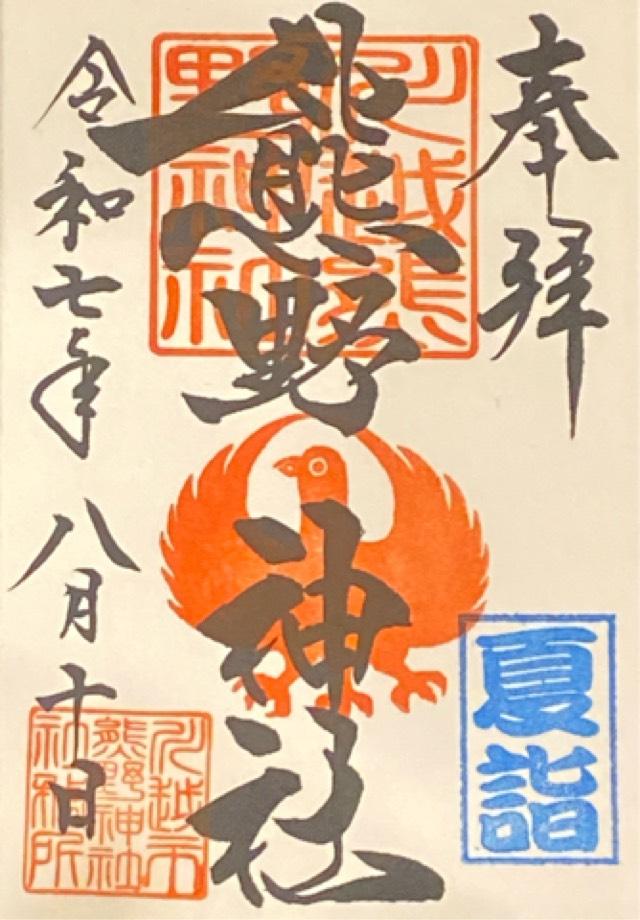 奉拝
川越熊野神社
熊野神社
夏詣
令和七年八月十日
川越市
熊野神社
社務所